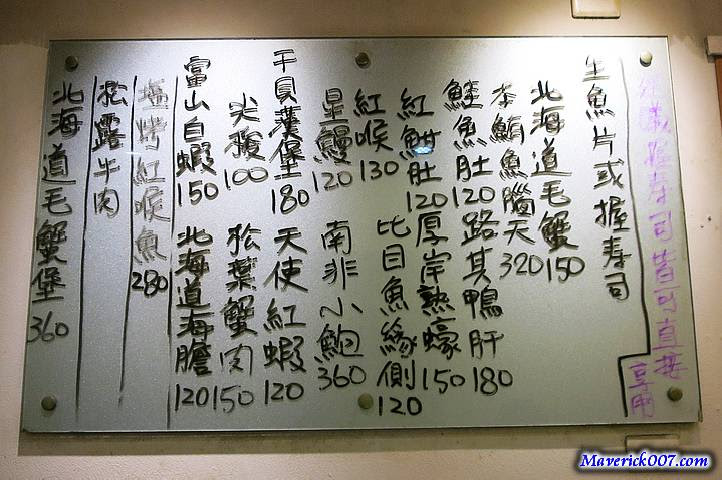 建議握壽司皆可直接
享用
生魚片或握壽司
北海道毛蟹150
本鮪魚腦天320
鮭魚肚120
路其鴨肝180
紅魽肚120
厚岸熟蠔150
紅喉130
比目魚緣側120
星鰻120
南非小鮑360
干貝漢堡180
天使紅蝦120
尖梭100
松葉蟹肉150
富山白蝦150
北海道海膽120
塩烤紅喉魚280
松露牛肉
北海道毛蟹堡360
Maverick007.com